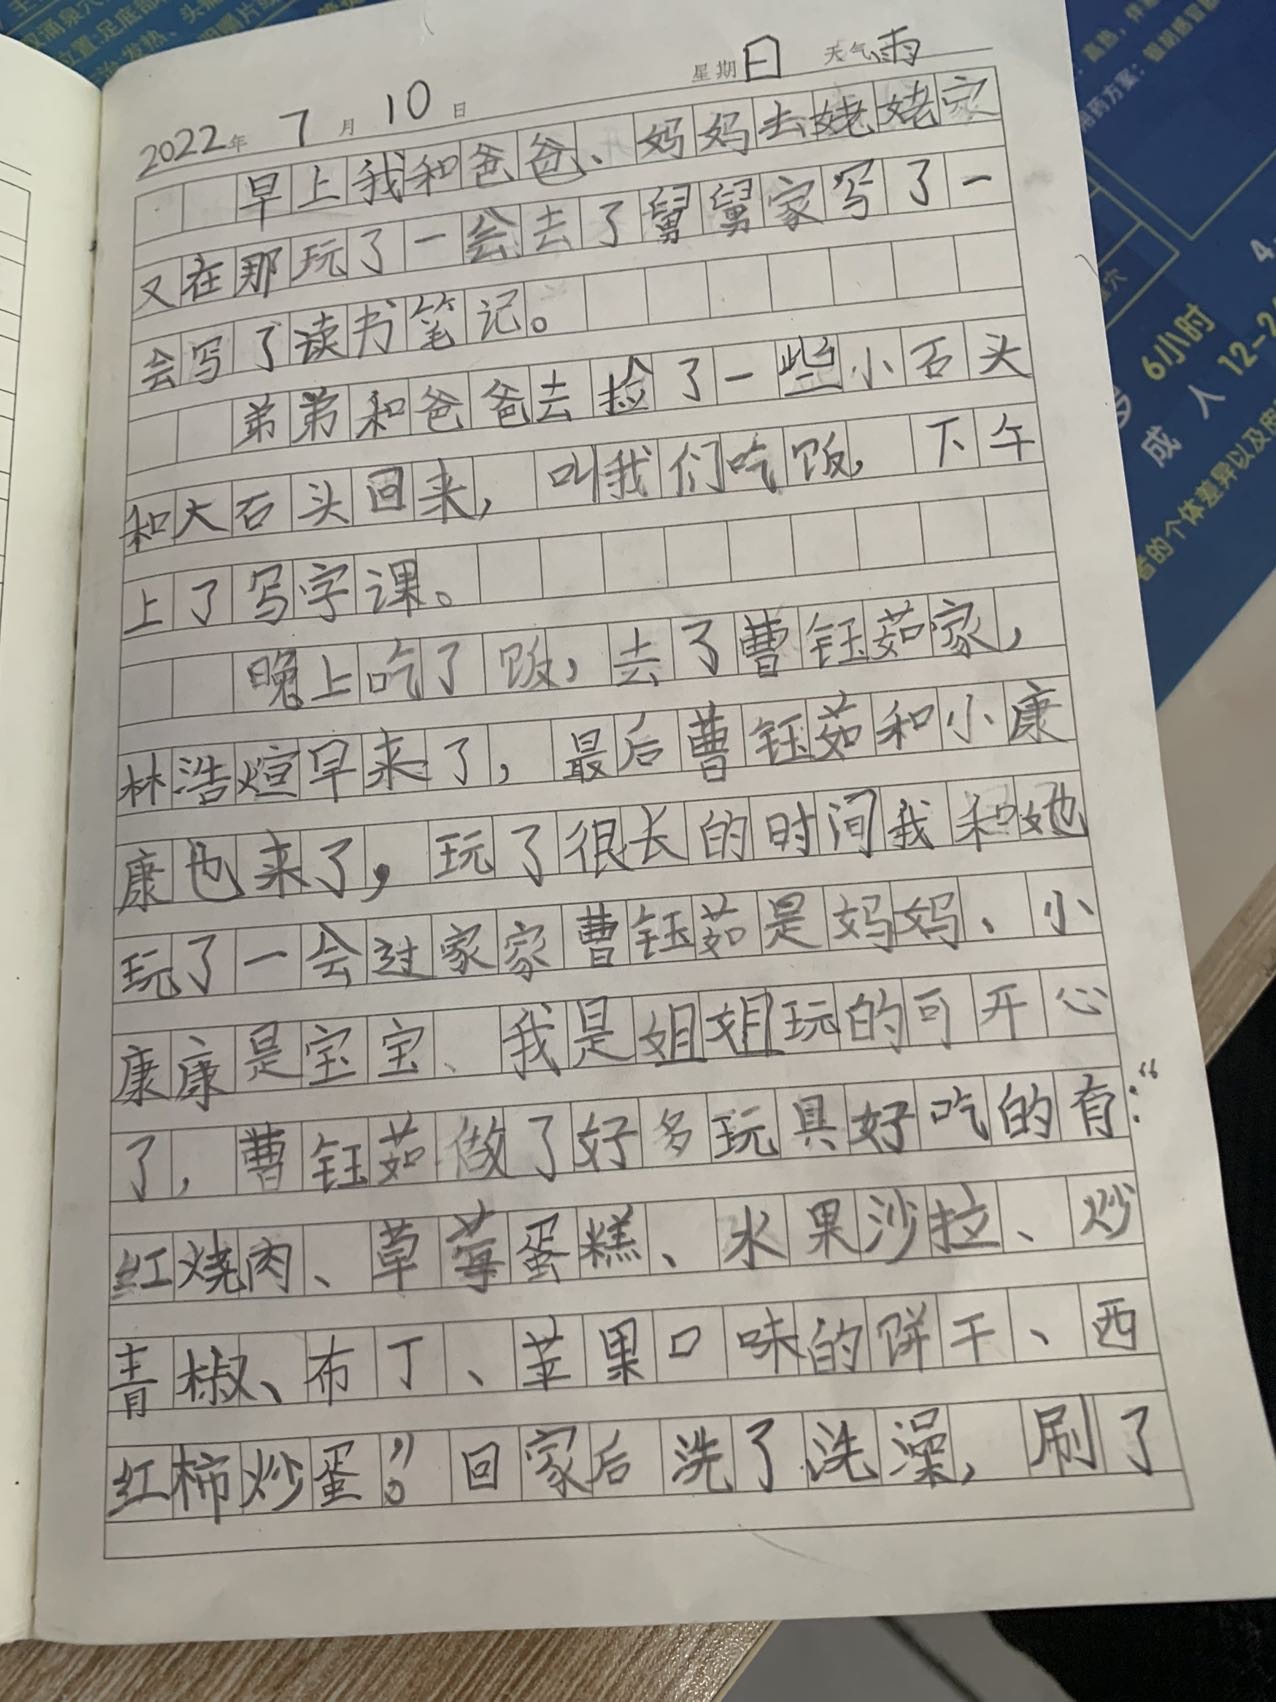 2022年 7月 10日 星期日 天气雨
早上我和爸爸、妈妈去姥姥家
又在那玩了一会去了舅舅家写了一
会写了读书笔记。
弟弟和爸爸去捡了一些小石头
和大石头回来，叫我们吃饭，下午
上了写字课。
晚上吃了饭，去了曹钰茹家，
林浩煊早来了，最后曹钰茹和小康
康也来了，玩了很长的时间我和她
玩了一会过家家曹钰茹是妈妈、小
康康是宝宝、我是姐姐玩的可开心
了，曹钰茹做了好多玩具好吃的有：“
红烧肉、草莓蛋糕、水果沙拉、炒
青椒、布丁、苹果口味的饼干、西
红柿炒蛋。”回家后洗了洗澡，刷了
6小时
成人 12-2
者的个体差异以及